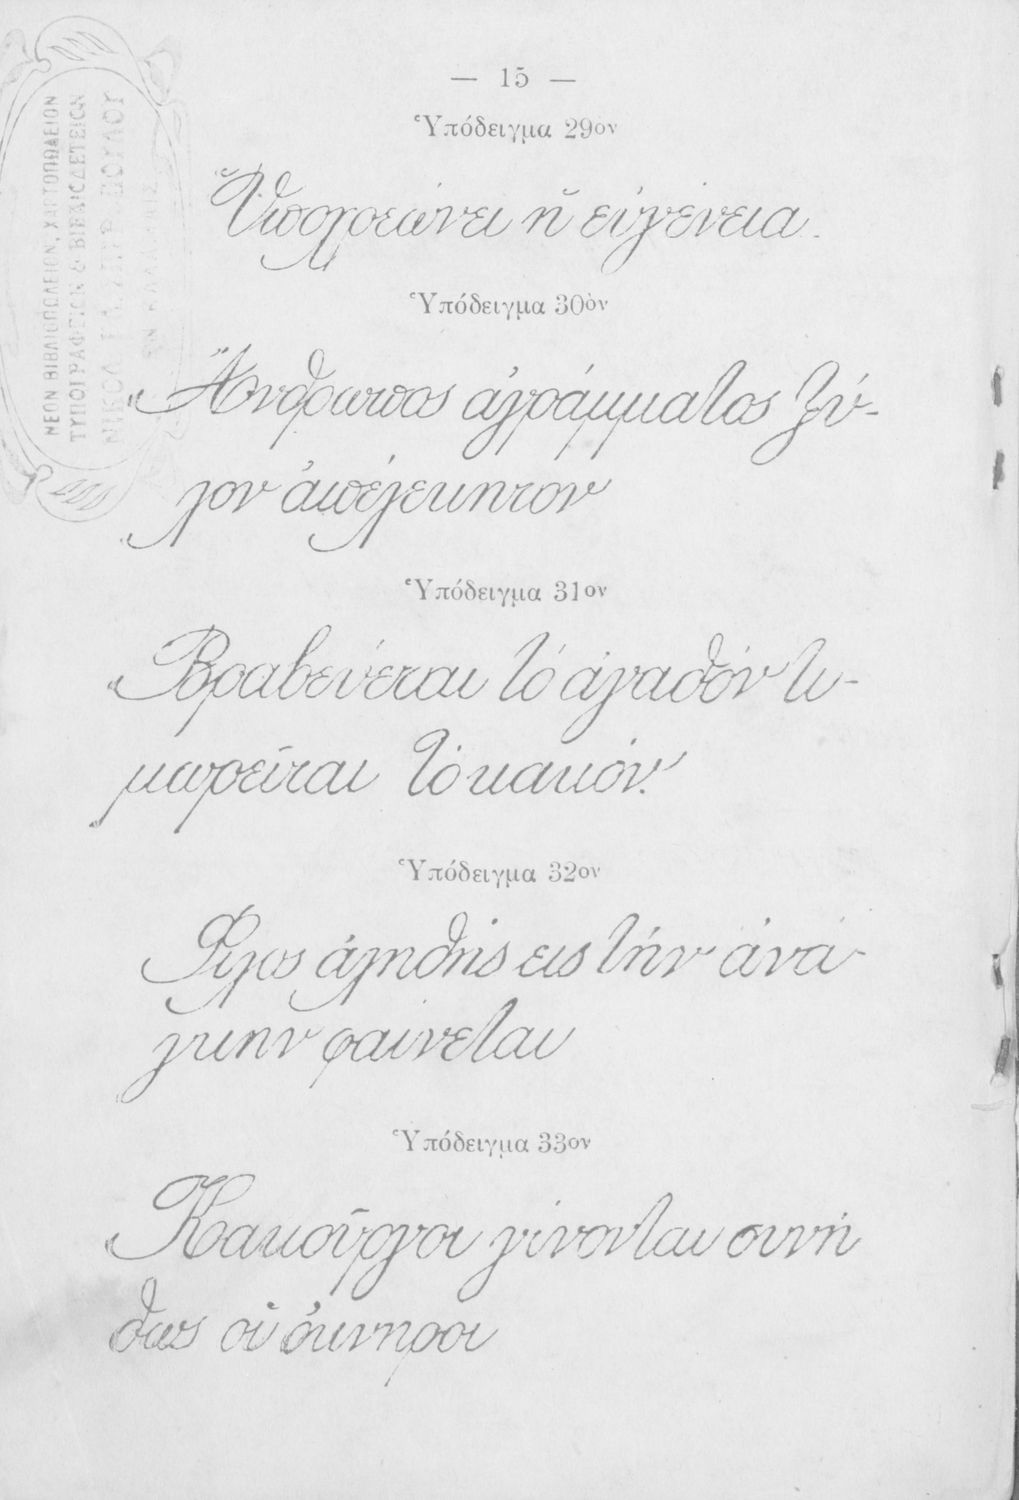 — 15 —
Ὑπόδειγμα 29ον
Ὑποχρεώνει ἡ εὐγένεια.
Ὑπόδειγμα 30ὸν
Ἄνθρωπος ἀγράμματος ξύ-
λον ἀπέλεκητον
Ὑπόδειγμα 31ον
Βραβεύεται τό ἀγαθόν τι-
μωρεῖται τό κακόν.
Ὑπόδειγμα 32ον
Φίλος ἀληθής εις τήν ἀνά-
γκην φαίνεται
Ὑπόδειγμα 33ον
Κακοῦργοι γίνονται συνή
θως οἱ ὀκνηροι
ΝΕΟΝ ΒΙΒΛΙΟΠΩΛΕΙΟΝ, ΧΑΡΤΟΠΩΛΕΙΟΝ
ΤΥΠΟΓΡΑΦΕΙΟΝ & ΒΙΒΛΙΟΔΕΤΕΙΟΝ